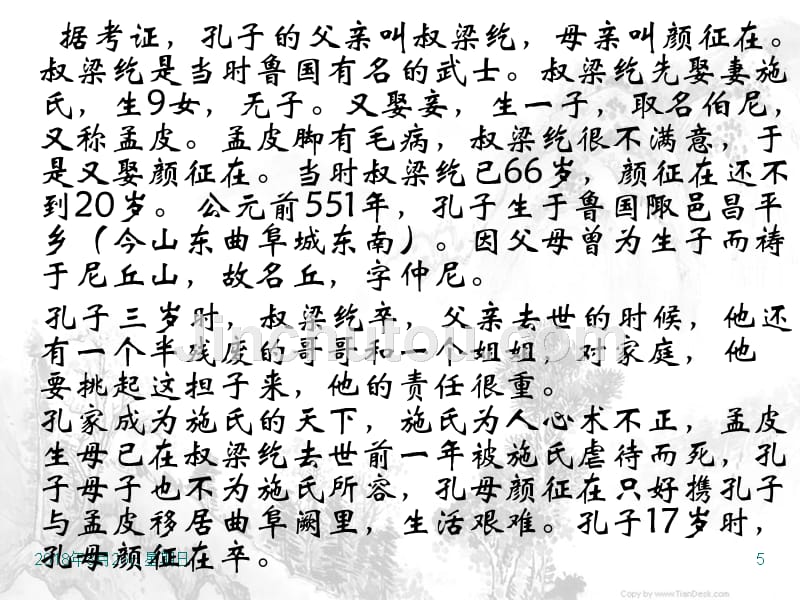 据考证，孔子的父亲叫叔梁纥，母亲叫颜征在。
叔梁纥是当时鲁国有名的武士。叔梁纥先娶妻施
氏，生9女，无子。又娶妾，生一子，取名伯尼，
又称孟皮。孟皮脚有毛病，叔梁纥很不满意，于
是又娶颜征在。当时叔梁纥已66岁，颜征在还不
到20岁。 公元前551年，孔子生于鲁国陬邑昌平
乡（今山东曲阜城东南）。因父母曾为生子而祷
于尼丘山，故名丘，字仲尼。
孔子三岁时，叔梁纥卒，父亲去世的时候，他还
有一个半残废的哥哥和一个姐姐，对家庭， 他
要挑起这担子来，他的责任很重。
孔家成为施氏的天下，施氏为人心术不正，孟皮
生母已在叔梁纥去世前一年被施氏虐待而死，孔
子母子也不为施氏所容，孔母颜征在只好携孔子
与孟皮移居曲阜阙里，生活艰难。孔子17岁时，
孔母颜征在卒。
5
Jinchutou.com
Copy by www.TianDesk.com